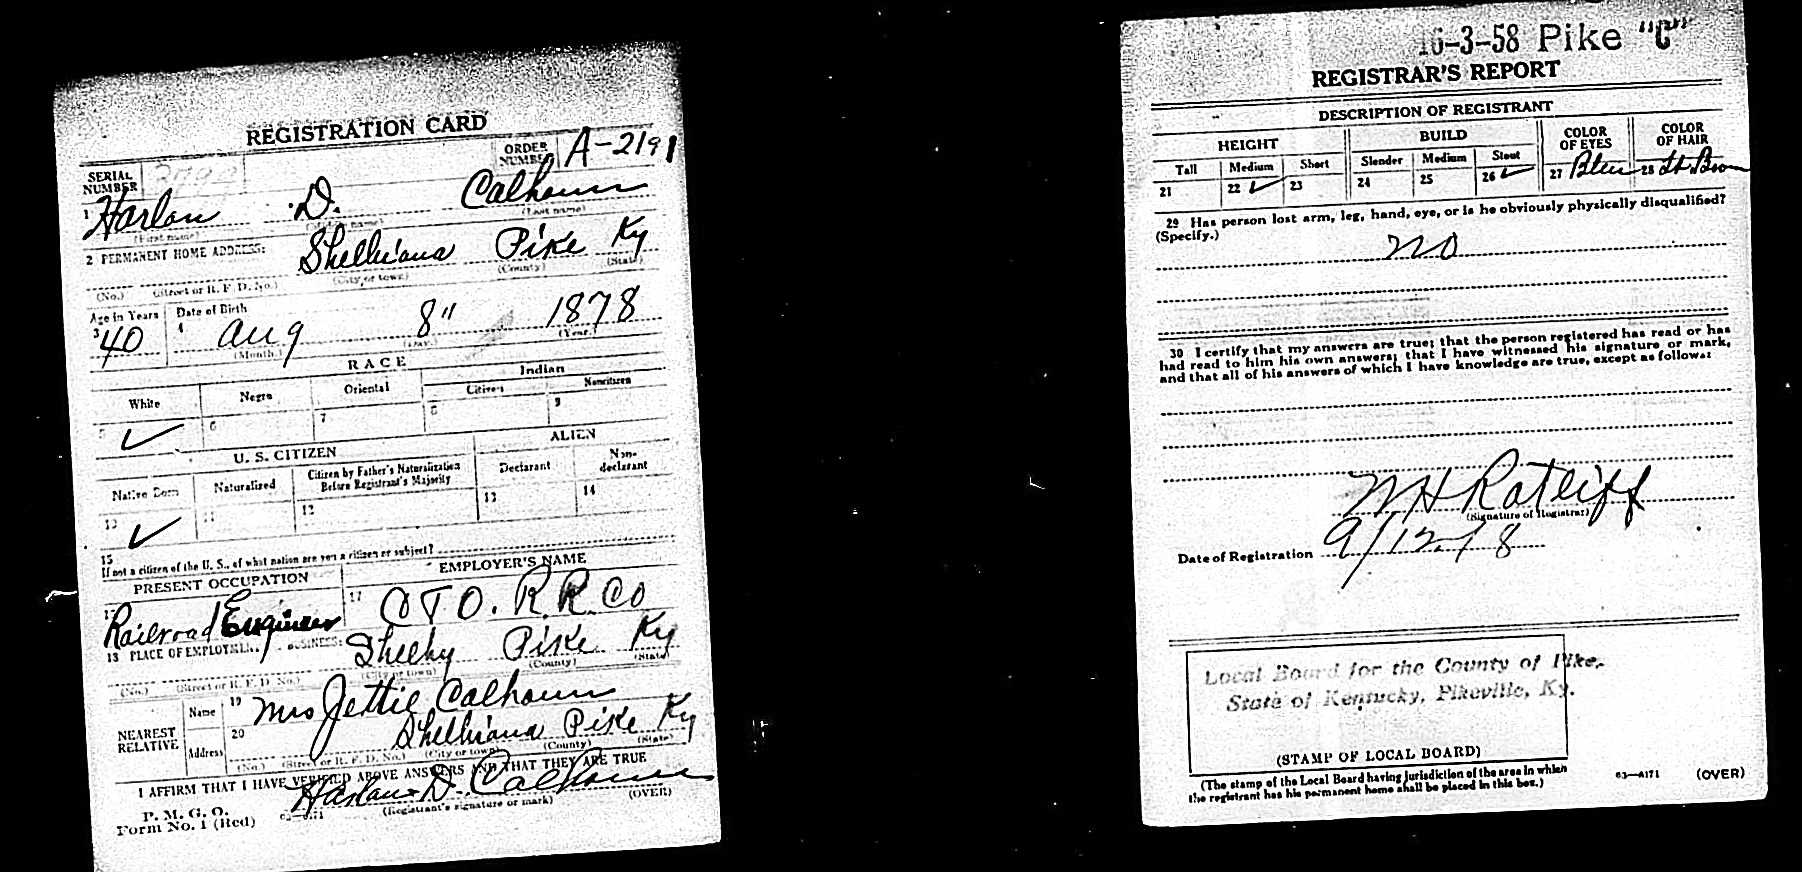 REGISTRATION CARD
SERIAL NUMBER
ORDER NUMBER A-2191
1 Harlan D. Calhoun
(First name) (Last name)
2 PERMANENT HOME ADDRESS: Shelbiana Pike Ky
(No.) (Street or R. F. D. No.) (City or town) (County) (State)
Age in Years Date of Birth
3 40 4 Aug 8" 1878
(Month.) (Day.) (Year.)
RACE
White Negro Oriental Indian
Citizen Noncitizen
5 ✓ 6 7 8 9
U. S. CITIZEN ALIEN
Native Born Naturalized Citizen by Father's Naturalization Before Registrant's Majority Declarant Non-declarant
10 ✓ 11 12 13 14
15 If not a citizen of the U. S., of what nation are you a citizen or subject?
PRESENT OCCUPATION EMPLOYER'S NAME
Railroad Engineer 17 C & O. R.R. Co
18 PLACE OF EMPLOYMENT OR BUSINESS: Shelby Pike Ky
(No.) (Street or R. F. D. No.) (City or town) (County) (State)
NEAREST RELATIVE
Name 19 Mrs Jettie Calhoun
Address 20 Shelbiana Pike Ky
(No.) (Street or R. F. D. No.) (City or town) (County) (State)
I AFFIRM THAT I HAVE VERIFIED ABOVE ANSWERS AND THAT THEY ARE TRUE
P. M. G. O.
Form No. 1 (Red)
Harlan D. Calhoun
(Registrant's signature or mark) (OVER)
16-3-58 Pike "C"
REGISTRAR'S REPORT
DESCRIPTION OF REGISTRANT
HEIGHT BUILD COLOR OF EYES COLOR OF HAIR
Tall Medium Short Slender Medium Stout
21 22 ✓ 23 24 25 26 ✓ 27 Blue 28 Lt. Brow
29 Has person lost arm, leg, hand, eye, or is he obviously physically disqualified?
(Specify.) no
30 I certify that my answers are true; that the person registered has read or has
had read to him his own answers; that I have witnessed his signature or mark,
and that all of his answers of which I have knowledge are true, except as follows:
M H Ratliff
(Signature of Registrar)
Date of Registration 9/12-18
Local Board for the County of Pike,
State of Kentucky, Pikeville, Ky.
(STAMP OF LOCAL BOARD)
(The stamp of the Local Board having jurisdiction of the area in which
the registrant has his permanent home shall be placed in this box.)
63—6171 (OVER)